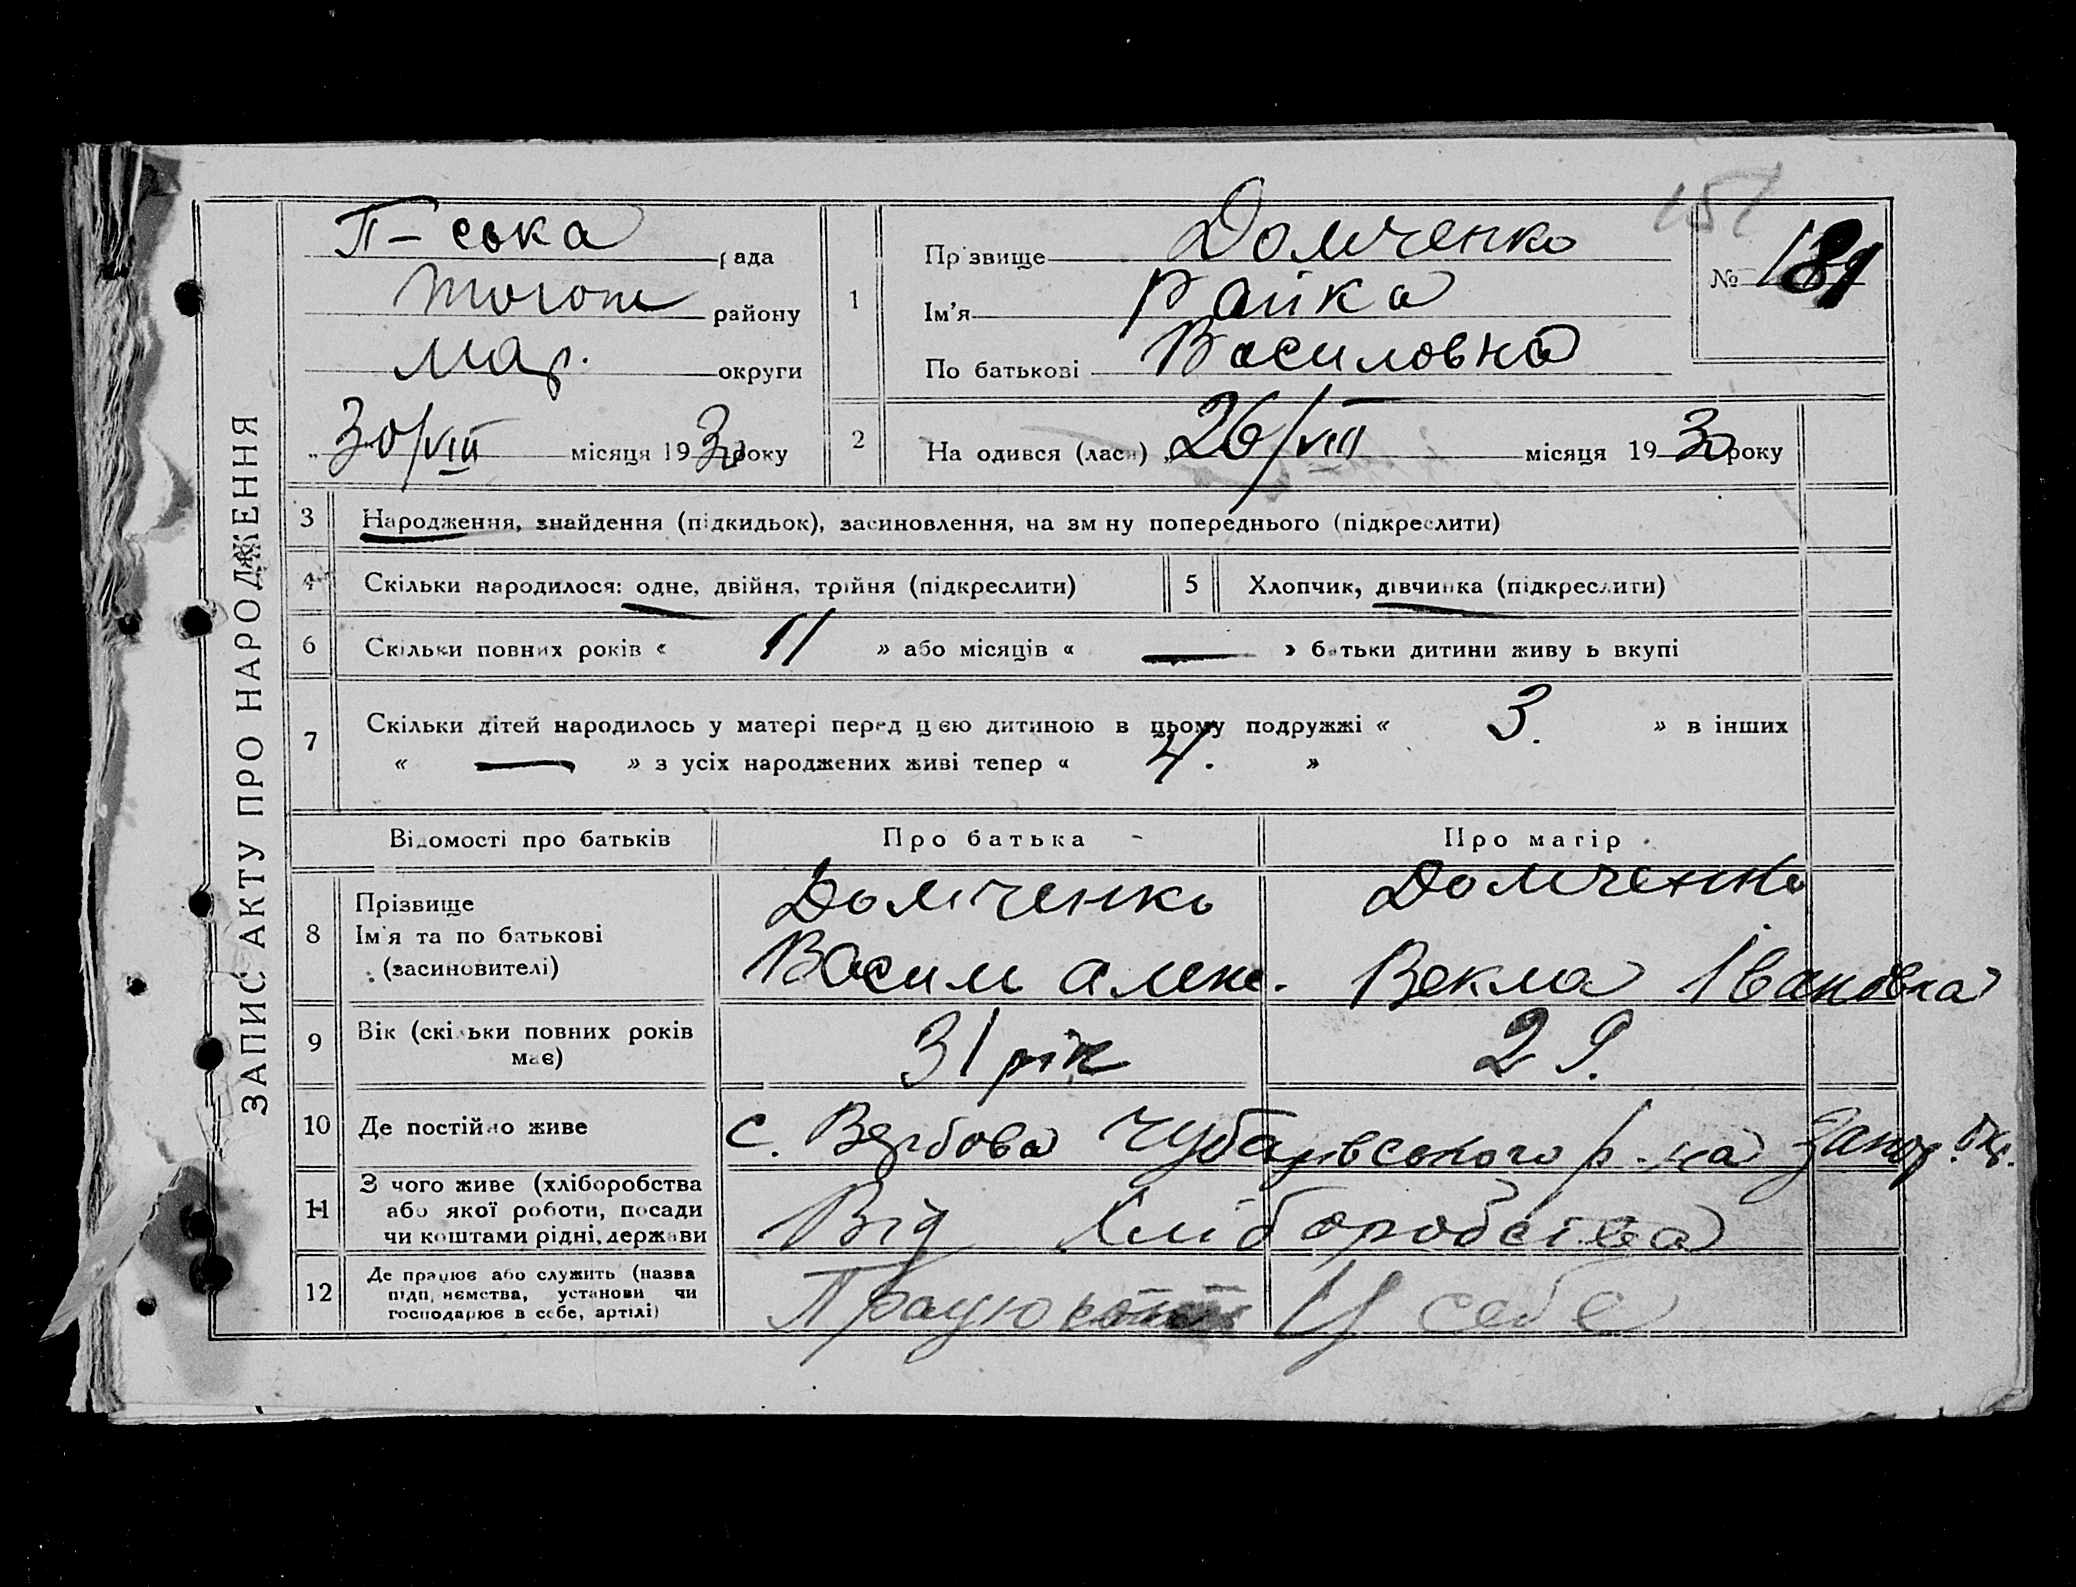 ЗАПИС АКТУ ПРО НАРОДЖЕННЯ
П-ська рада
району
Мар. округи
„30/VIII місяця 1930 року
151
№ 181
1
Прізвище Домченко
Ім'я Райка
По батькові Василовна
2
На одився (лася) „26/VIII місяця 1930 року
3 Народження, знайдення (підкидьок), засиновлення, на зм ну попереднього (підкреслити)
4 Скільки народилося: одне, двійня, трійня (підкреслити)
5 Хлопчик, дівчинка (підкреслити)
6 Скільки повних років « 11 » або місяців « — » батьки дитини живу ь вкупі
7 Скільки дітей народилось у матері перед цією дитиною в цьому подружжі « 3. » в інших
« — » з усіх народжених живі тепер « 4. »
Відомості про батьків Про батька Про матір
8 Прізвище
Ім'я та по батькові
(засиновителі)
Домченко
Василь Алекс.
Домченко
Векла Івановна
9 Вік (скільки повних років має)
31 рік
29.
10 Де постійно живе
с. Вербова Чубарівського р-на Запор. окр.
11 З чого живе (хліборобства
або якої роботи, посади
чи коштами рідні, держави
Від Хліборобства
12 Де працює або служить (назва
підп, иємства, установи чи
господарює в себе, артілі)
Працю У себе